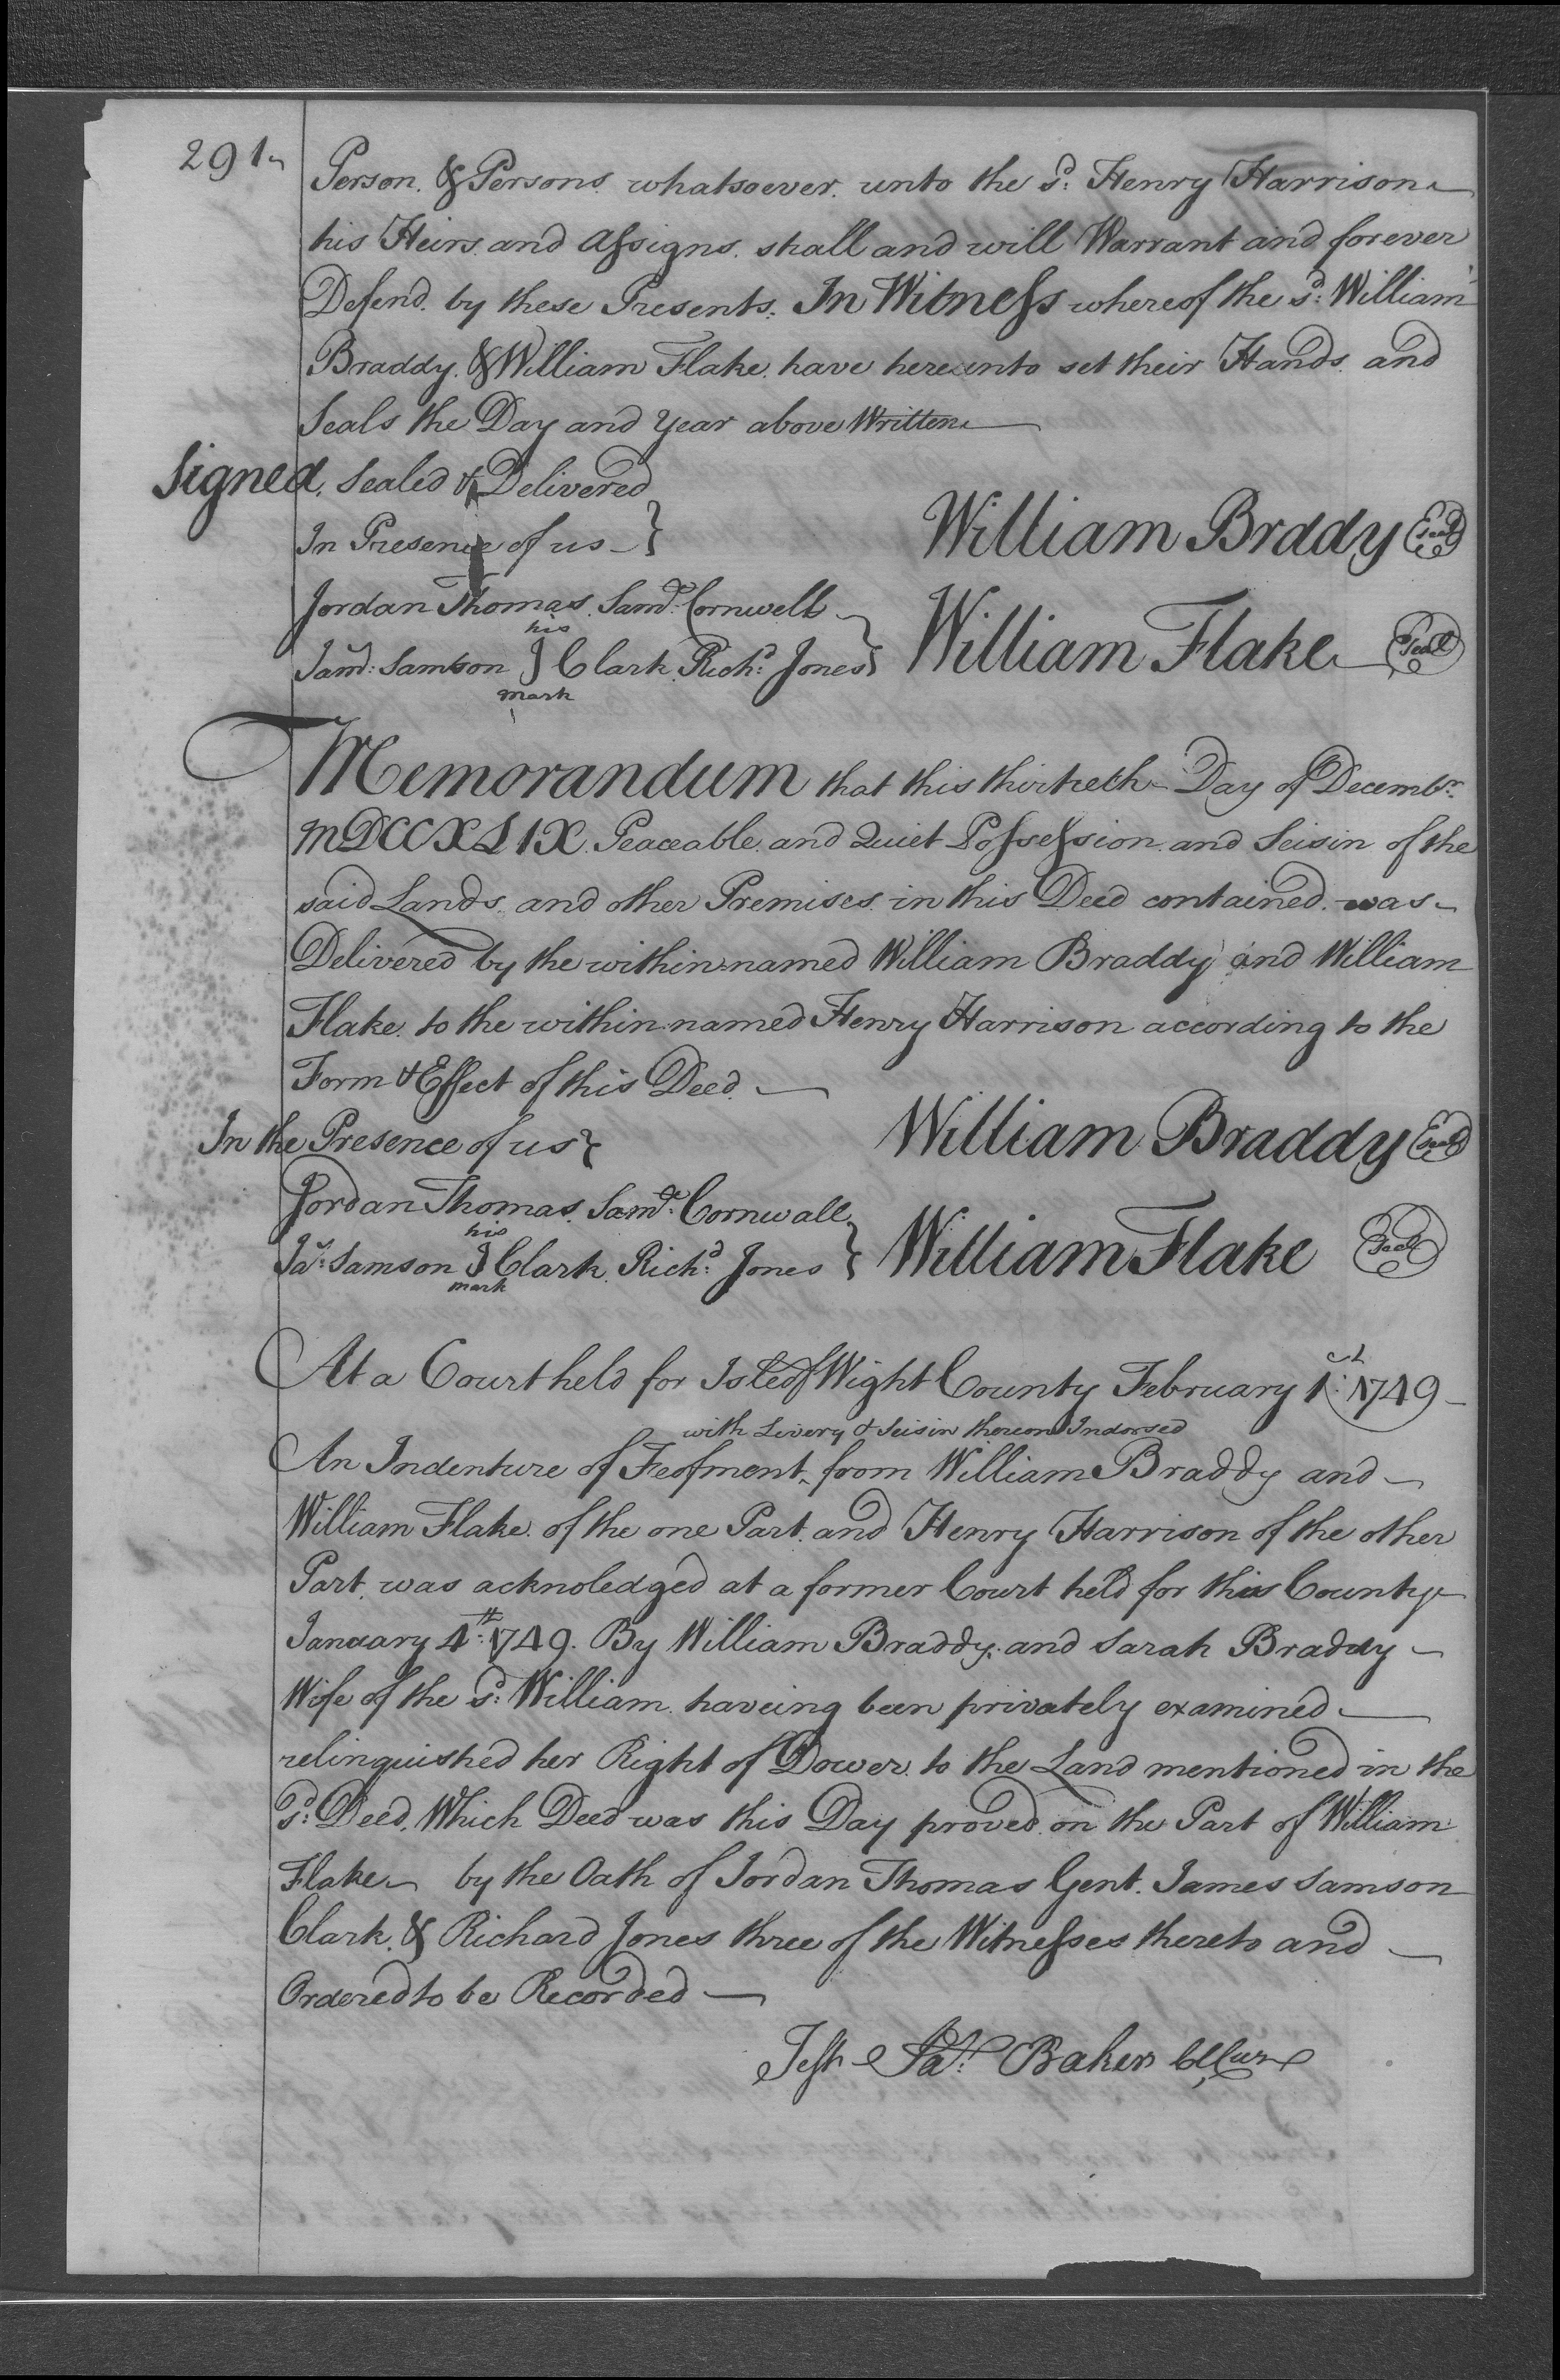 291
Person. & Persons. whatsoever. unto the sd: Henry Harrison
his Heirs. and Assigns. shall and will Warrant and forever
Defend. by these Presents. In Witness whereof the sd: William
Braddy. & William Flake. have hereunto set their Hands. and
Seals the Day and Year above Written
Signed, Sealed & Delivered
In Presence of us
William Braddy Seal
Jordan Thomas. Saml: Cornwell
William Flake Seal
his
Samson J Clark. Richd: Jones
mark
Memorandum that this thirtieth Day of Decembr.
MDCCXLIX. Peaceable. and Quiet Possession. and Seisin of the
said Lands. and other Premises. in this Deed contained. was
Delivered by the within named William Braddy and William
Flake. to the within named Henry Harrison according to the
Form & Effect of this Deed.
In the Presence of us
William Braddy Seal
Jordan Thomas. Saml: Cornwall
William Flake Seal
his
Jas: Samson J Clark. Richd: Jones
mark
At a Court held for Isle of Wight County February 1st: 1749
with Livery & Seisin thereon Indorsed
An Indenture of Feofment ‸ from William Braddy and
William Flake. of the one Part. and Henry Harrison of the other
Part. was acknoledged at a former Court held for this County
January 4th: 1749. By William Braddy. and Sarah Braddy
Wife of the sd: William. haveing been privately examined
relinquished her Right of Dower. to the Land mentioned in the
sd: Deed. Which Deed was this Day proved. on the Part of William
Flake by the Oath of Jordan Thomas Gent. James Samson
Clark. & Richard Jones three of the Witnesses thereto and
Ordered to be Recorded
Test Jas: Baker ClCur